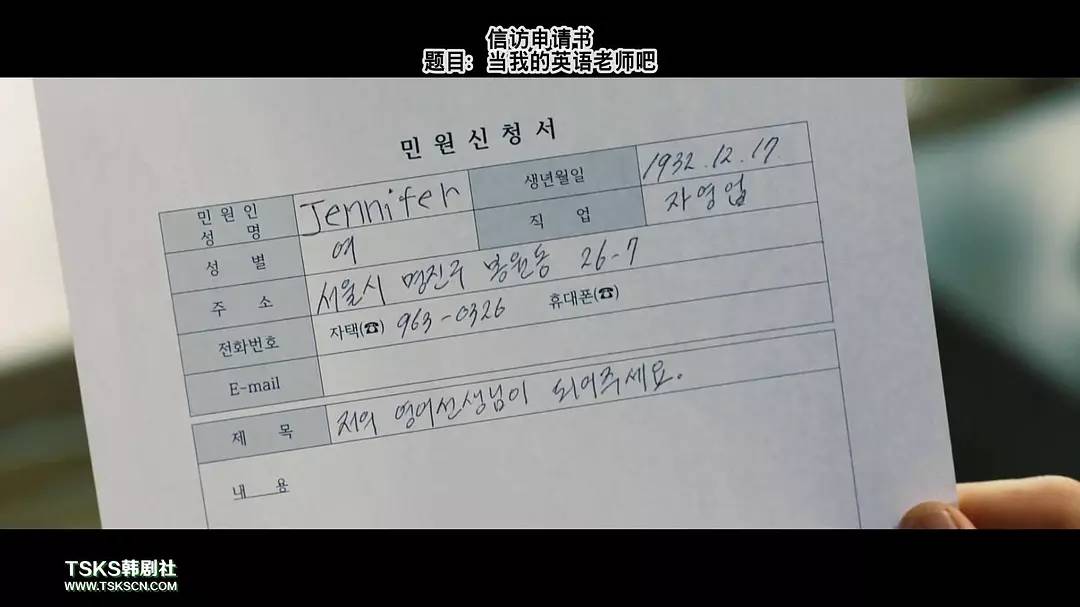 信访申请书
题目：当我的英语老师吧
민원신청서
민원인 성명 Jennifer 생년월일 1932.12.17
성별 여 직업 자영업
주소 서울시 명진구 봉원동 26-7
전화번호 자택(☎) 963-0326 휴대폰(☎)
E-mail
제목 저의 영어선생님이 되어주세요.
내용
TSKS韩剧社
WWW.TSKSCN.COM